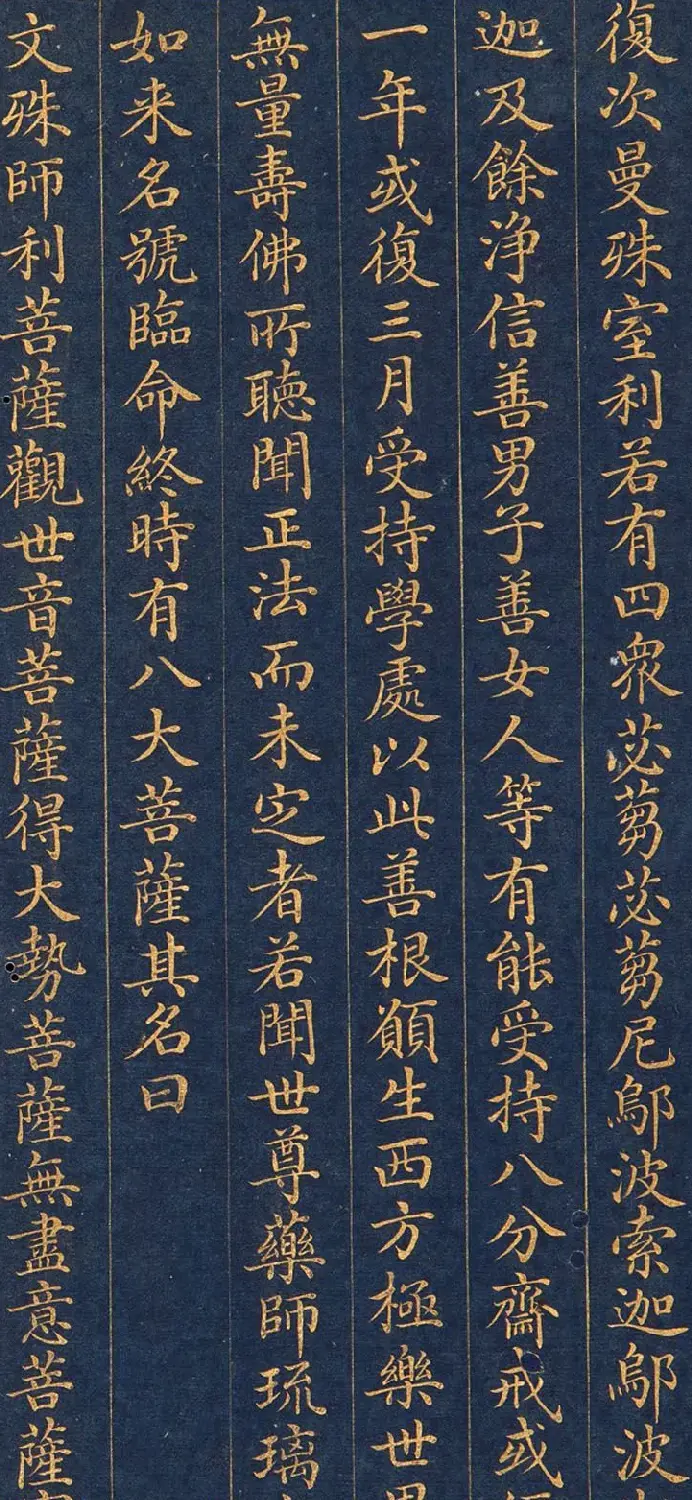 復次曼殊室利若有四衆苾蒭苾蒭尼鄔波索迦鄔波
迦及餘淨信善男子善女人等有能受持八分齋戒或
一年或復三月受持學處以此善根願生西方極樂世
無量壽佛所聽聞正法而未定者若聞世尊藥師琉璃
如来名號臨命終時有八大菩薩其名曰
文殊師利菩薩觀世音菩薩得大勢菩薩無盡意菩薩